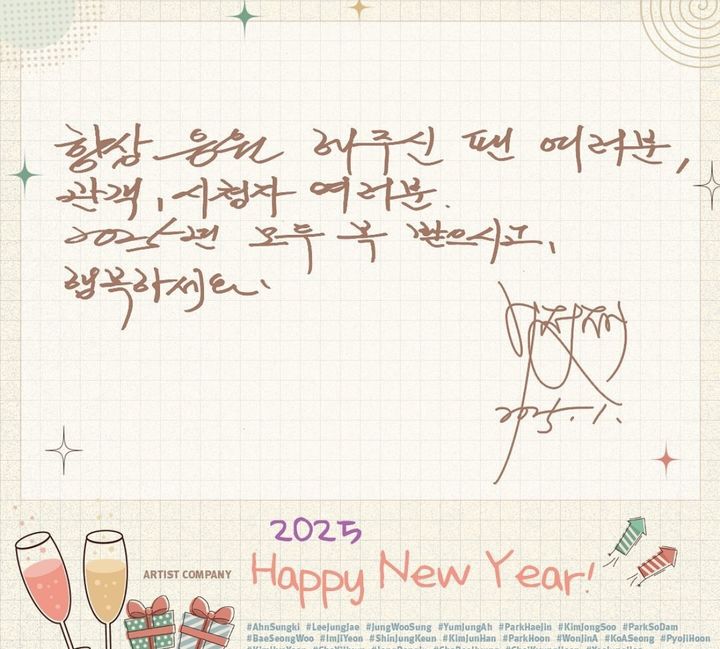 항상 응원 해주신 팬 여러분,
관객, 시청자 여러분.
2025년 모두 복 받으시고,
행복하세요.
2025. 1.
2025
ARTIST COMPANY
Happy New Year!
#AhnSungki #LeeJungJae #JungWooSung #YumJungAh #ParkHaeJin #KimJongSoo #ParkSoDam
#BaeSeongWoo #ImJiYeon #ShinJungKeun #KimJunHan #ParkHoon #WonJinA #KoASeong #PyoJiHoon